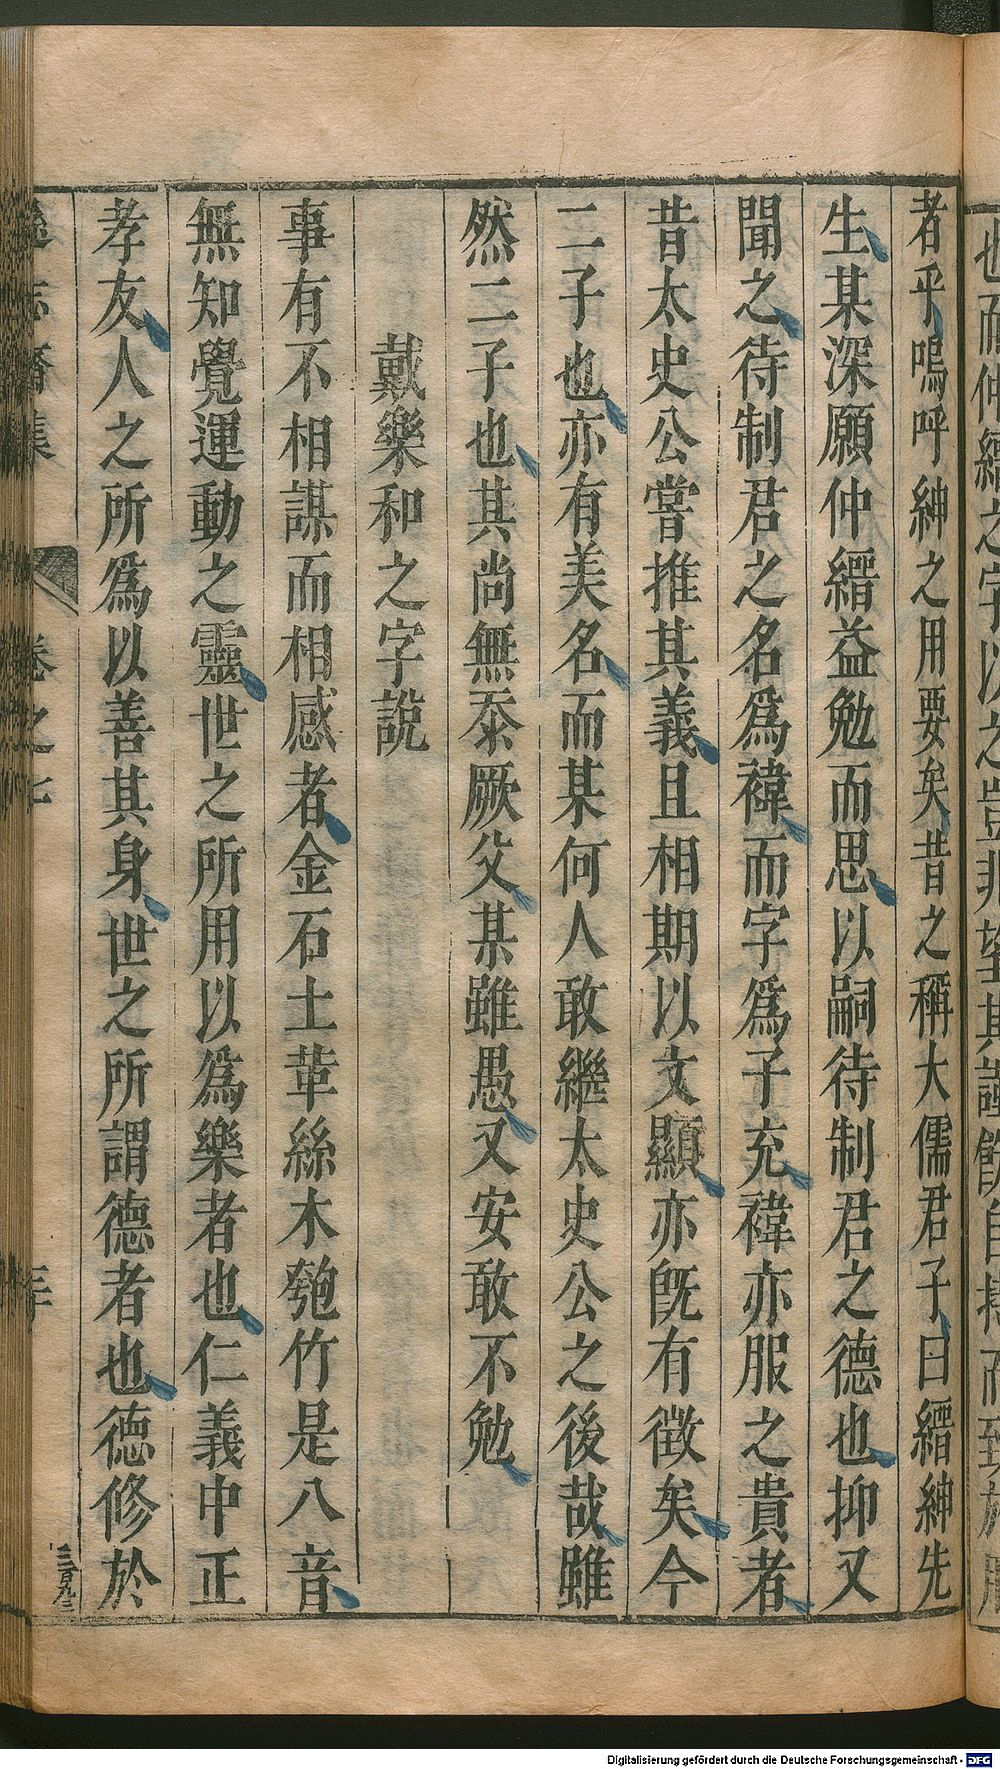 也而仲縉之字以之豈非望其謹飭自持而致於服
者乎嗚呼紳之用要矣昔之稱大儒君子曰縉紳先
生某深願仲縉益勉而思以嗣待制君之德也抑又
聞之待制君之名爲褘而字爲子充褘亦服之貴者
昔太史公嘗推其義且相期以文顯亦旣有徵矣今
二子也亦有美名而某何人敢繼太史公之後哉雖
然二子也其尚無忝厥父某雖愚又安敢不勉
戴樂和之字說
事有不相謀而相感者金石土革絲木匏竹是八音
無知覺運動之靈世之所用以爲樂者也仁義中正
孝友人之所爲以善其身世之所謂德者也德修於
三百九三
遜志齋集 卷之七
Digitalisierung gefördert durch die Deutsche Forschungsgemeinschaft - DFG